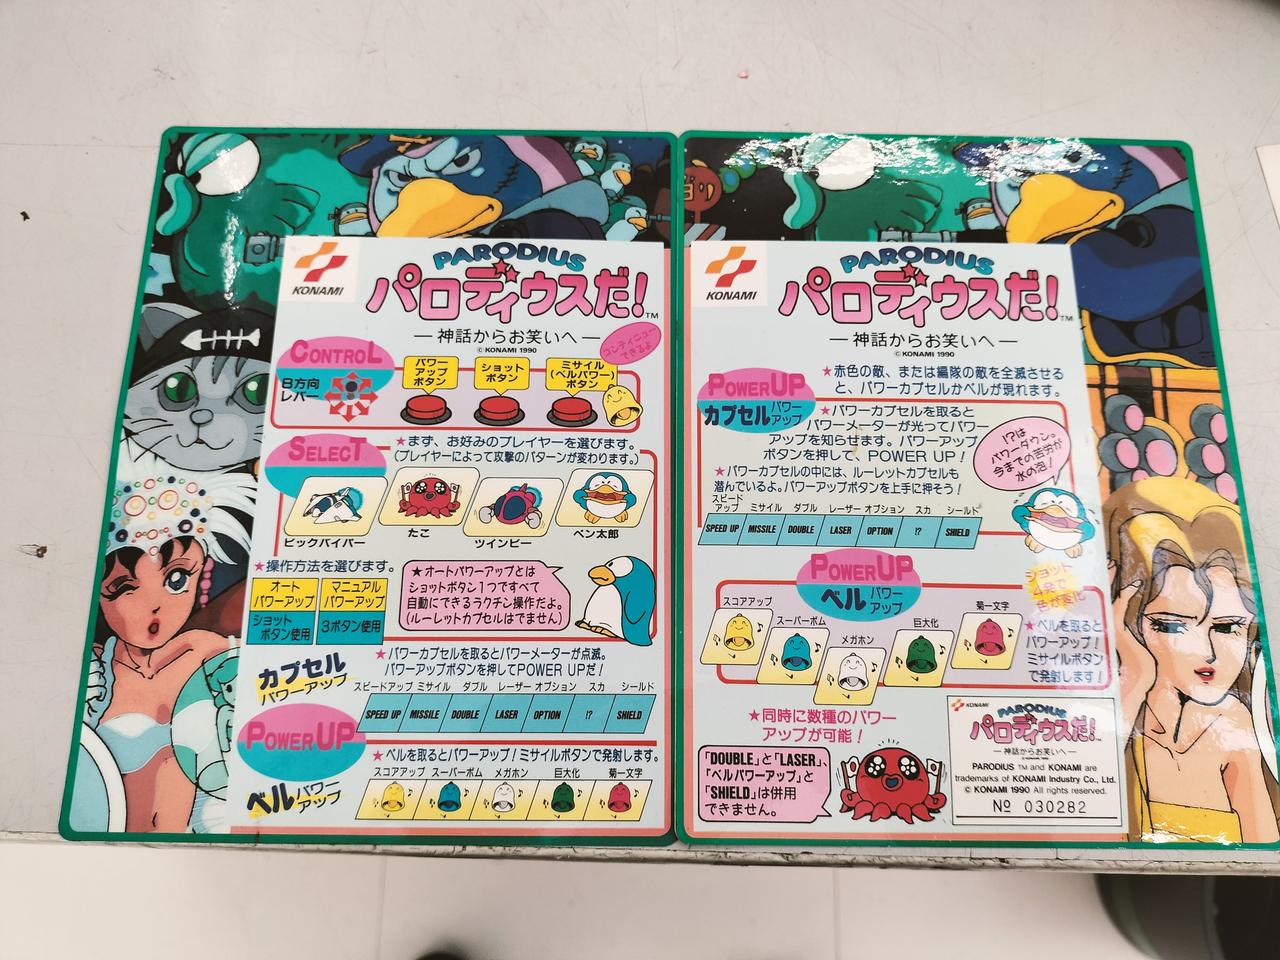 KONAMI
PARODIUS
パロディウスだ!
TM
—神話からお笑いへ—
© KONAMI 1990
コンティニュー
できるよ
CONTROL
8方向
レバー
パワー
アップ
ボタン
ショット
ボタン
ミサイル
(ベルパワー)
ボタン
SELECT
★まず、お好みのプレイヤーを選びます。
(プレイヤーによって攻撃のパターンが変わります。)
ビックバイパー
たこ
ツインビー
ペン太郎
★操作方法を選びます。
オート
パワーアップ
マニュアル
パワーアップ
ショット
ボタン使用
3ボタン使用
★オートパワーアップとは
ショットボタン1つですべて
自動にできるラクチン操作だよ。
(ルーレットカプセルはでません)
カプセル
パワーアップ
★パワーカプセルを取るとパワーメーターが点滅。
パワーアップボタンを押してPOWER UPだ!
スピードアップ ミサイル ダブル レーザー オプション スカ シールド
SPEED UP MISSILE DOUBLE LASER OPTION !? SHIELD
POWER UP
★ベルを取るとパワーアップ!ミサイルボタンで発射します。
スコアアップ スーパーボム メガホン 巨大化 菊一文字
ベル パワー
アップ
KONAMI
PARODIUS
パロディウスだ!
TM
—神話からお笑いへ—
© KONAMI 1990
POWER UP
カプセル パワー
アップ
★赤色の敵、または編隊の敵を全滅させる
と、パワーカプセルかベルが現れます。
★パワーカプセルを取ると
パワーメーターが光ってパワー
アップを知らせます。パワーアップ
ボタンを押して、POWER UP!
★パワーカプセルの中には、ルーレットカプセルも
潜んでいるよ。パワーアップボタンを上手に押そう!
!?は
パワーダウン。
今までの苦労が
水の泡!
スピード
アップ ミサイル ダブル レーザー オプション スカ シールド
SPEED UP MISSILE DOUBLE LASER OPTION !? SHIELD
POWER UP
ベル パワー
アップ
ショット
4発で
色が変化
スコアアップ
スーパーボム
メガホン
巨大化
菊一文字
★ベルを取ると
パワーアップ!
ミサイルボタン
で発射します!
★同時に数種のパワー
アップが可能!
「DOUBLE」と「LASER」、
「ベルパワーアップ」と
「SHIELD」は併用
できません。
KONAMI
PARODIUS
パロディウスだ!
—神話からお笑いへ—
© KONAMI 1990
PARODIUS TM and KONAMI are
trademarks of KONAMI Industry Co., Ltd.
© KONAMI 1990 All rights reserved.
№ 030282